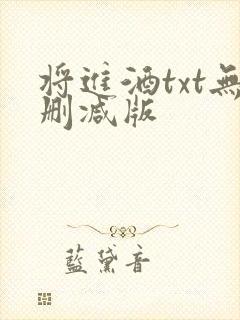 将進酒txt無
删减版
藍黛音